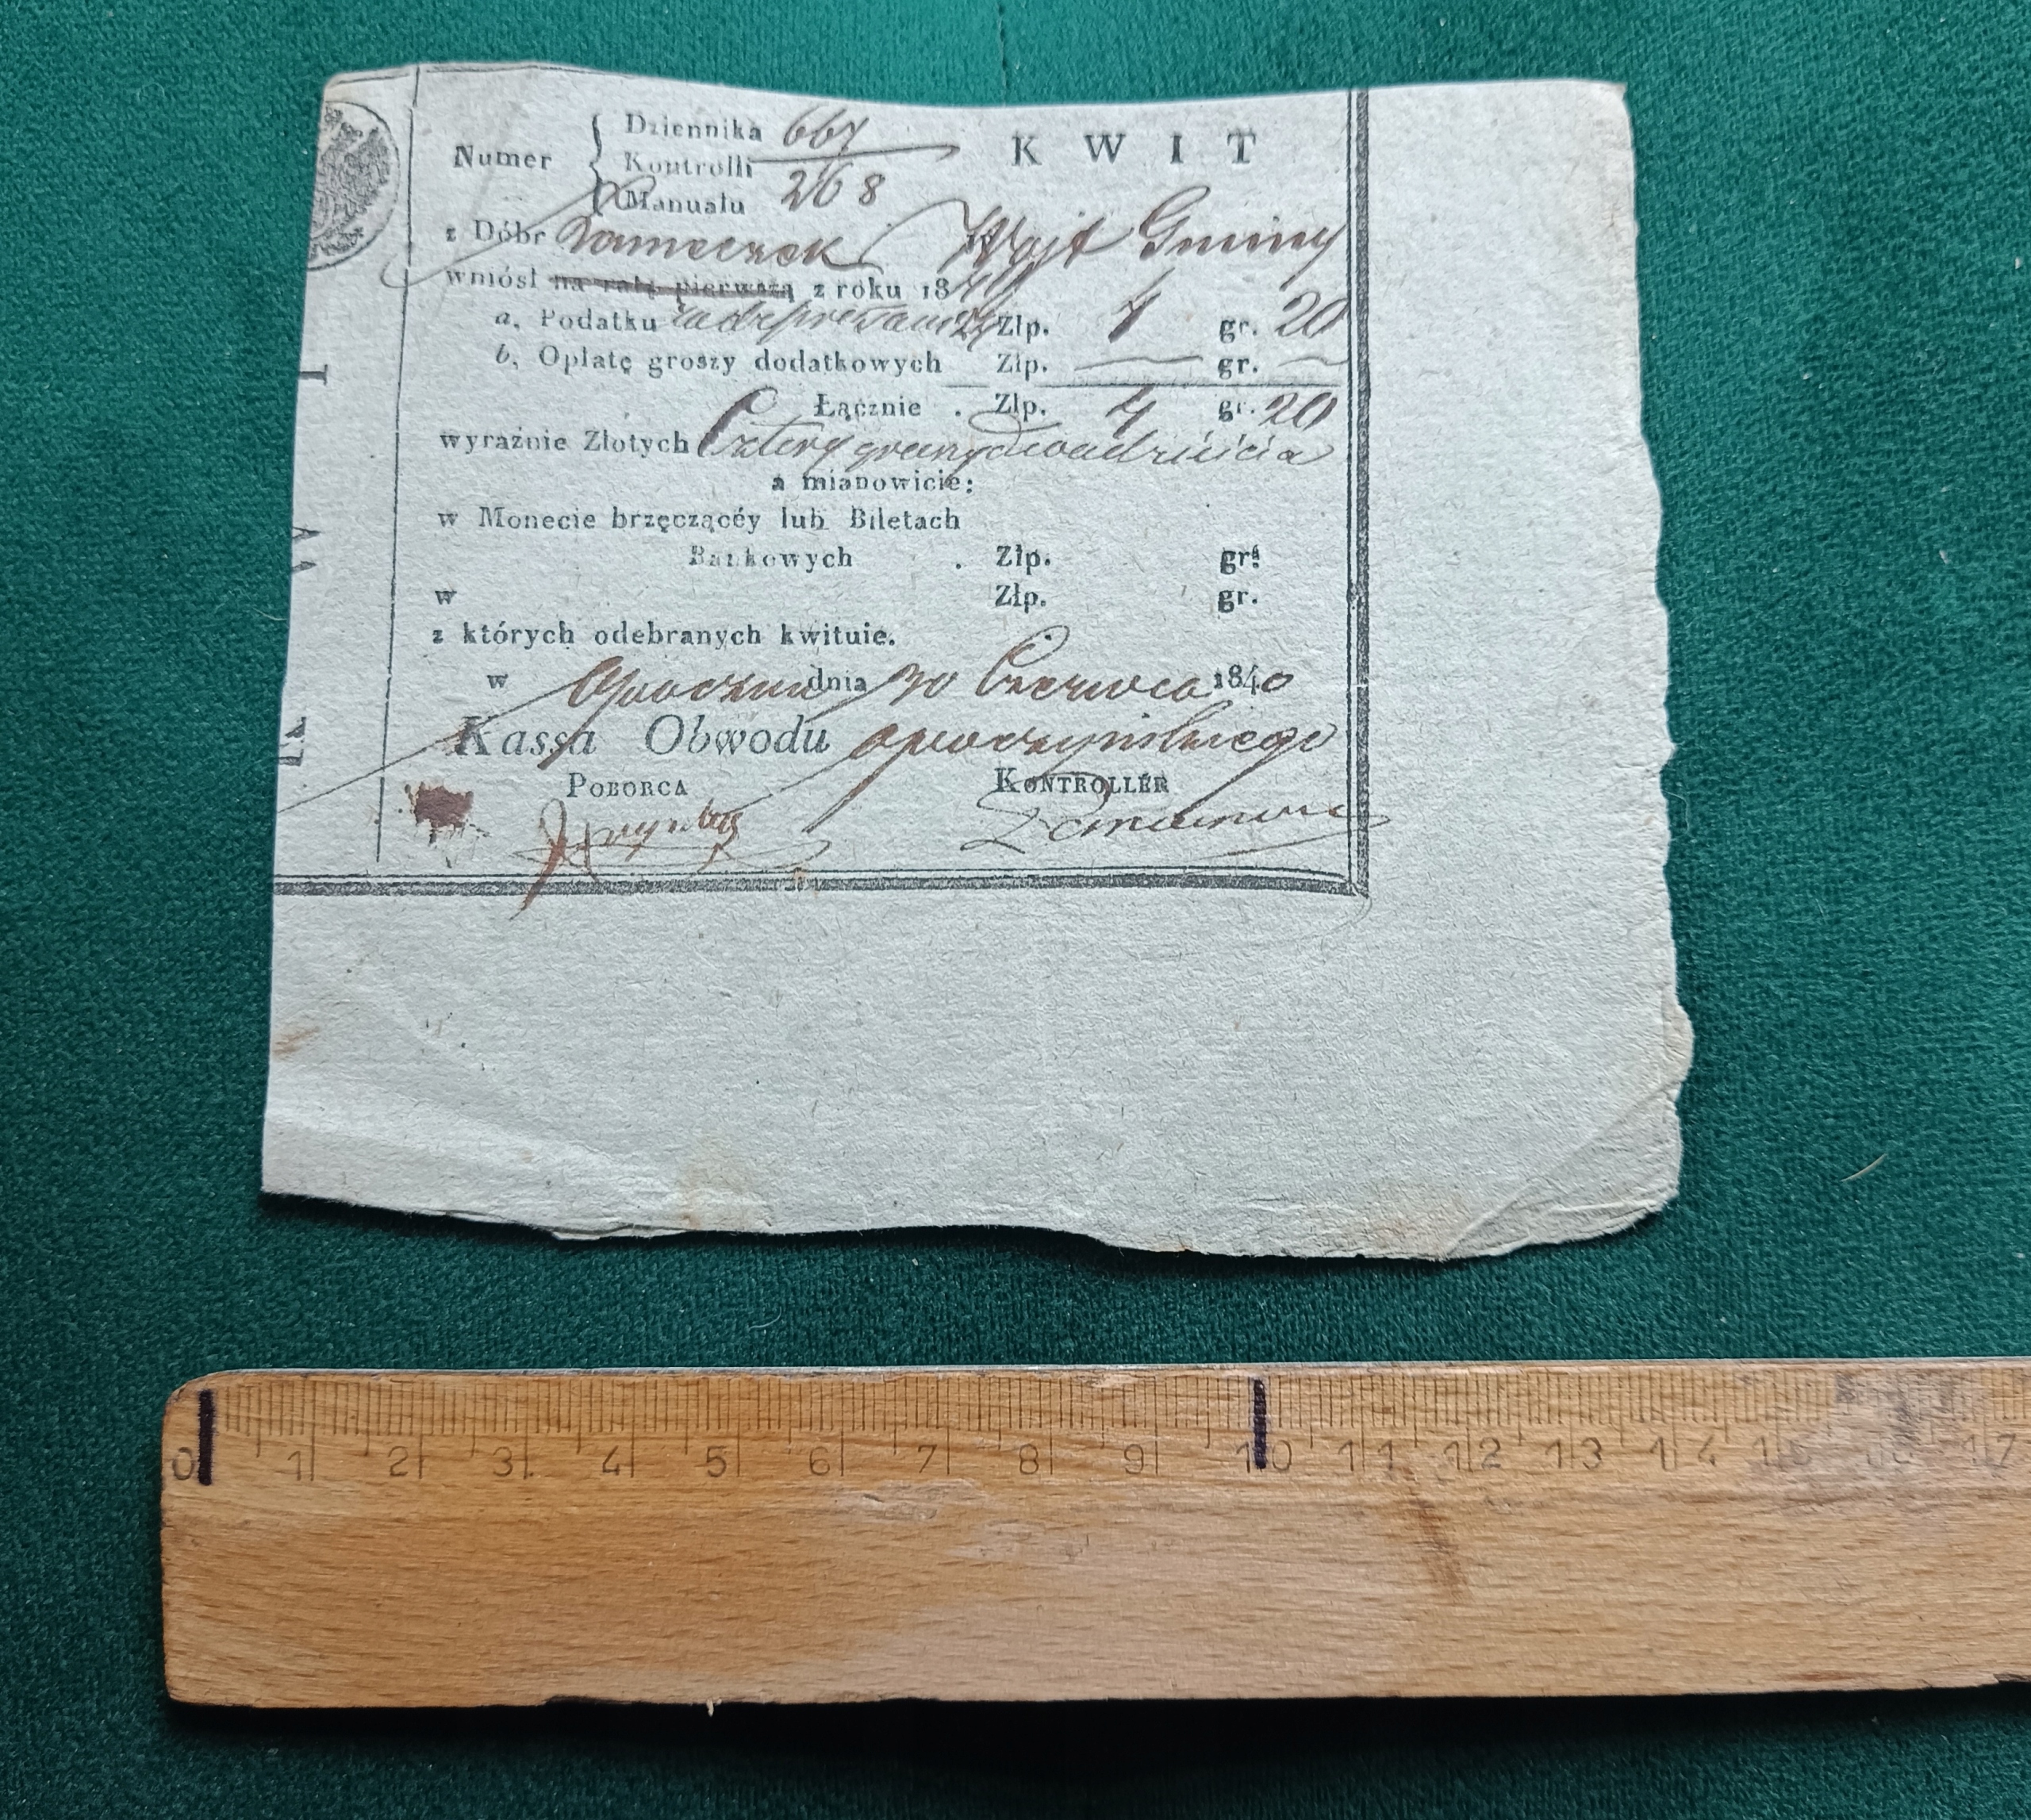 Numer Dziennika 667
Kontrolli
Manualu 268
K W I T
z Dóbr Wójt Gminy
wniósł na ratę pierwszą z roku 1840
a, Podatku Złp. 4 gr. 20
b, Opłatę groszy dodatkowych Złp. — gr. —
Łącznie . Złp. 4 gr. 20
wyraźnie Złotych Cztery groszy dwadzieścia
a mianowicie:
w Monecie brzęczącéy lub Biletach
Bankowych . Złp. gr.
w Złp. gr.
z których odebranych kwituie.
w Opocznie dnia 30 Czerwca 1840
Kassa Obwodu Opoczyńskiego
POBORCA KONTROLLER
0 1 2 3 4 5 6 7 8 9 10 11 12 13 14 15 16 17